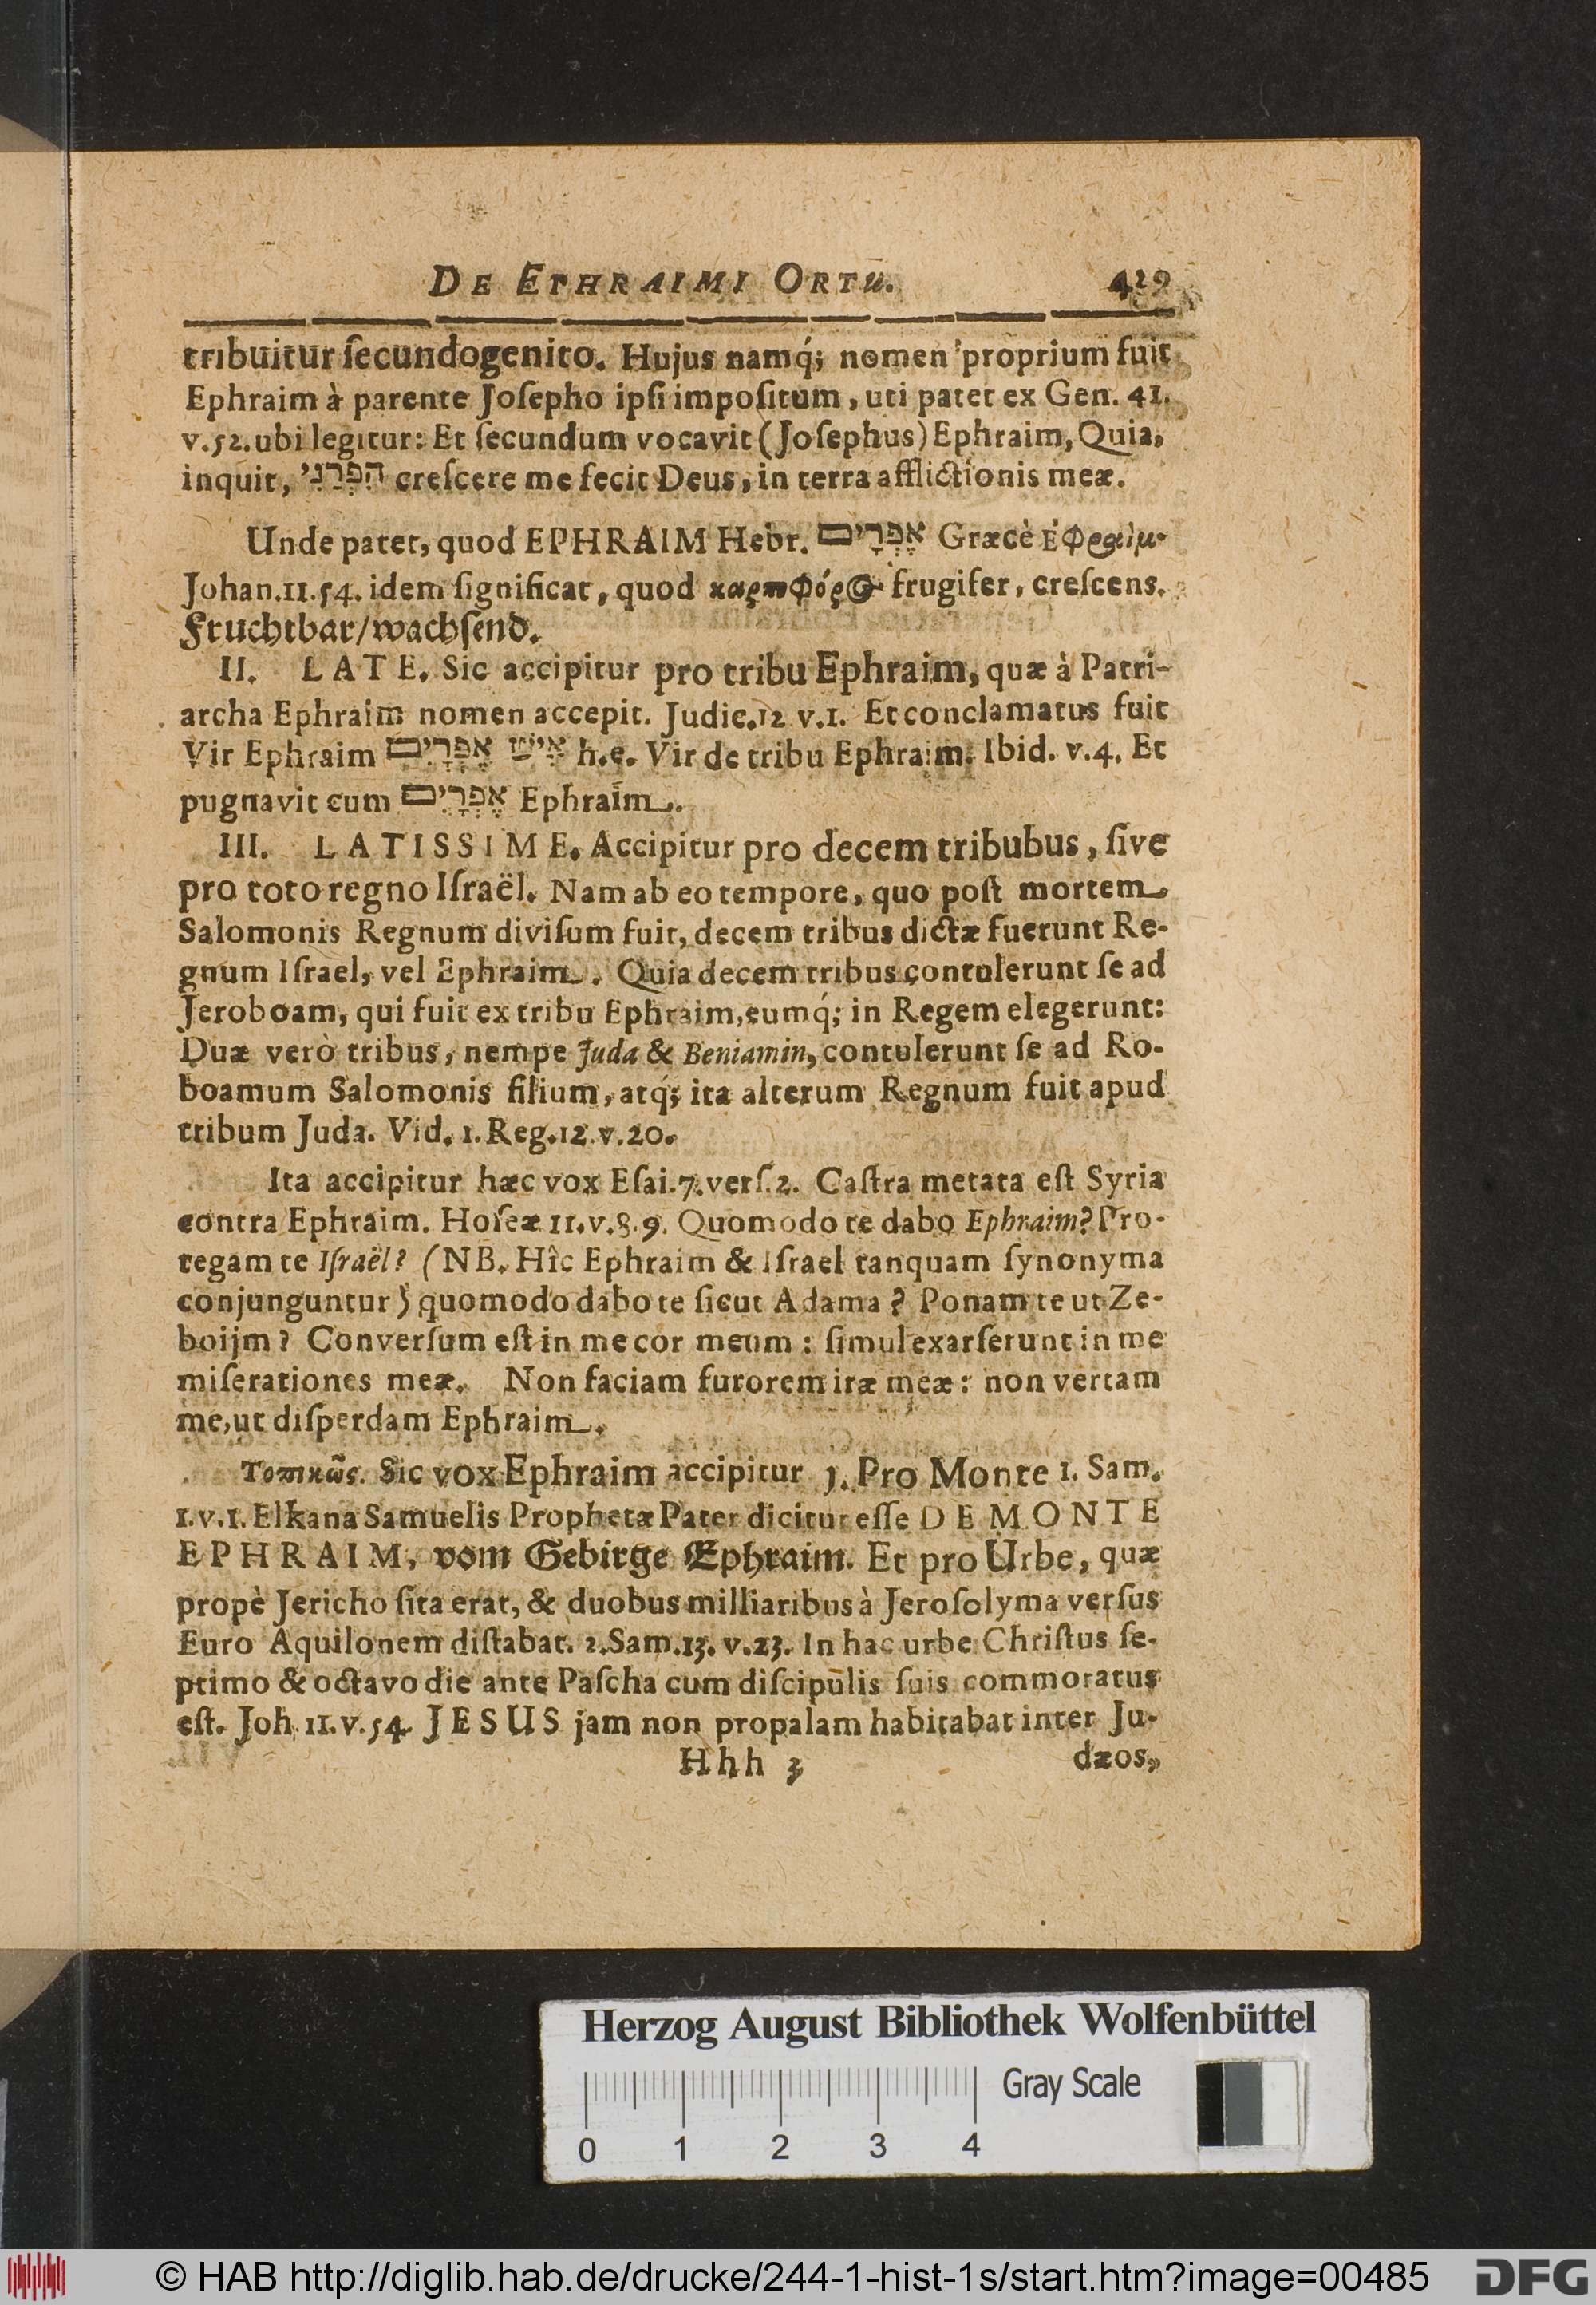 DE EPHRAIMI ORTU. 429
tribuitur ſecundogenito. Hujus namq́; nomen proprium fuit
Ephraim à parente Joſepho ipſi impoſitum, uti patet ex Gen. 41.
v.52. ubi legitur: Et ſecundum vocavit (Joſephus) Ephraim, Quia,
inquit, הִפְרַנִי creſcere me fecit Deus, in terra afflictionis meæ.
Unde patet, quod EPHRAIM Hebr. אֶפְרָיִם Græcè Ἐφραὶμ
Johan.11.54. idem ſignificat, quod καρποφόρος frugifer, creſcens.
Fruchtbar/wachſend.
II. LATE. Sic accipitur pro tribu Ephraim, quæ à Patri-
archa Ephraim nomen accepit. Judic.12 v.1. Et conclamatus fuit
Vir Ephraim אִישׁ אֶפְרָיִם h.e. Vir de tribu Ephraim. Ibid. v.4. Et
pugnavit cum אֶפְרָיִם Ephraim.
III. LATISSIME. Accipitur pro decem tribubus, ſive
pro toto regno Iſraël. Nam ab eo tempore, quo poſt mortem
Salomonis Regnum diviſum fuit, decem tribus dictæ fuerunt Re-
gnum Iſrael, vel Ephraim. Quia decem tribus contulerunt ſe ad
Jeroboam, qui fuit ex tribu Ephraim, eumq́; in Regem elegerunt:
Duæ verò tribus, nempe Juda & Beniamin, contulerunt ſe ad Ro-
boamum Salomonis filium, atq́; ita alterum Regnum fuit apud
tribum Juda. Vid. 1. Reg.12.v.20.
Ita accipitur hæc vox Eſai.7.verſ.2. Caſtra metata eſt Syria
contra Ephraim. Hoſeæ 11.v.8.9. Quomodo te dabo Ephraim? Pro-
tegam te Iſraël? (NB. Hîc Ephraim & Iſrael tanquam ſynonyma
conjunguntur) quomodo dabo te ſicut Adama? Ponam te ut Ze-
boijm? Converſum eſt in me cor meum: ſimul exarſerunt in me
miſerationes meæ. Non faciam furorem iræ meæ: non vertam
me, ut diſperdam Ephraim.
Τοπικῶς. Sic vox Ephraim accipitur 1. Pro Monte 1. Sam.
1.v.1. Elkana Samuelis Prophetæ Pater dicitur eſſe DE MONTE
EPHRAIM, vom Gebirge Ephraim. Et pro Urbe, quæ
propè Jericho ſita erat, & duobus milliaribus à Jeroſolyma verſus
Euro Aquilonem diſtabat. 2.Sam.13. v.23. In hac urbe Chriſtus ſe-
ptimo & octavo die ante Paſcha cum diſcipulis ſuis commoratus
eſt. Joh. 11.v.54. JESUS jam non propalam habitabat inter Ju-
Hhh 3 dæos,
Herzog August Bibliothek Wolfenbüttel
Gray Scale
0 1 2 3 4
© HAB http://diglib.hab.de/drucke/244-1-hist-1s/start.htm?image=00485 DFG